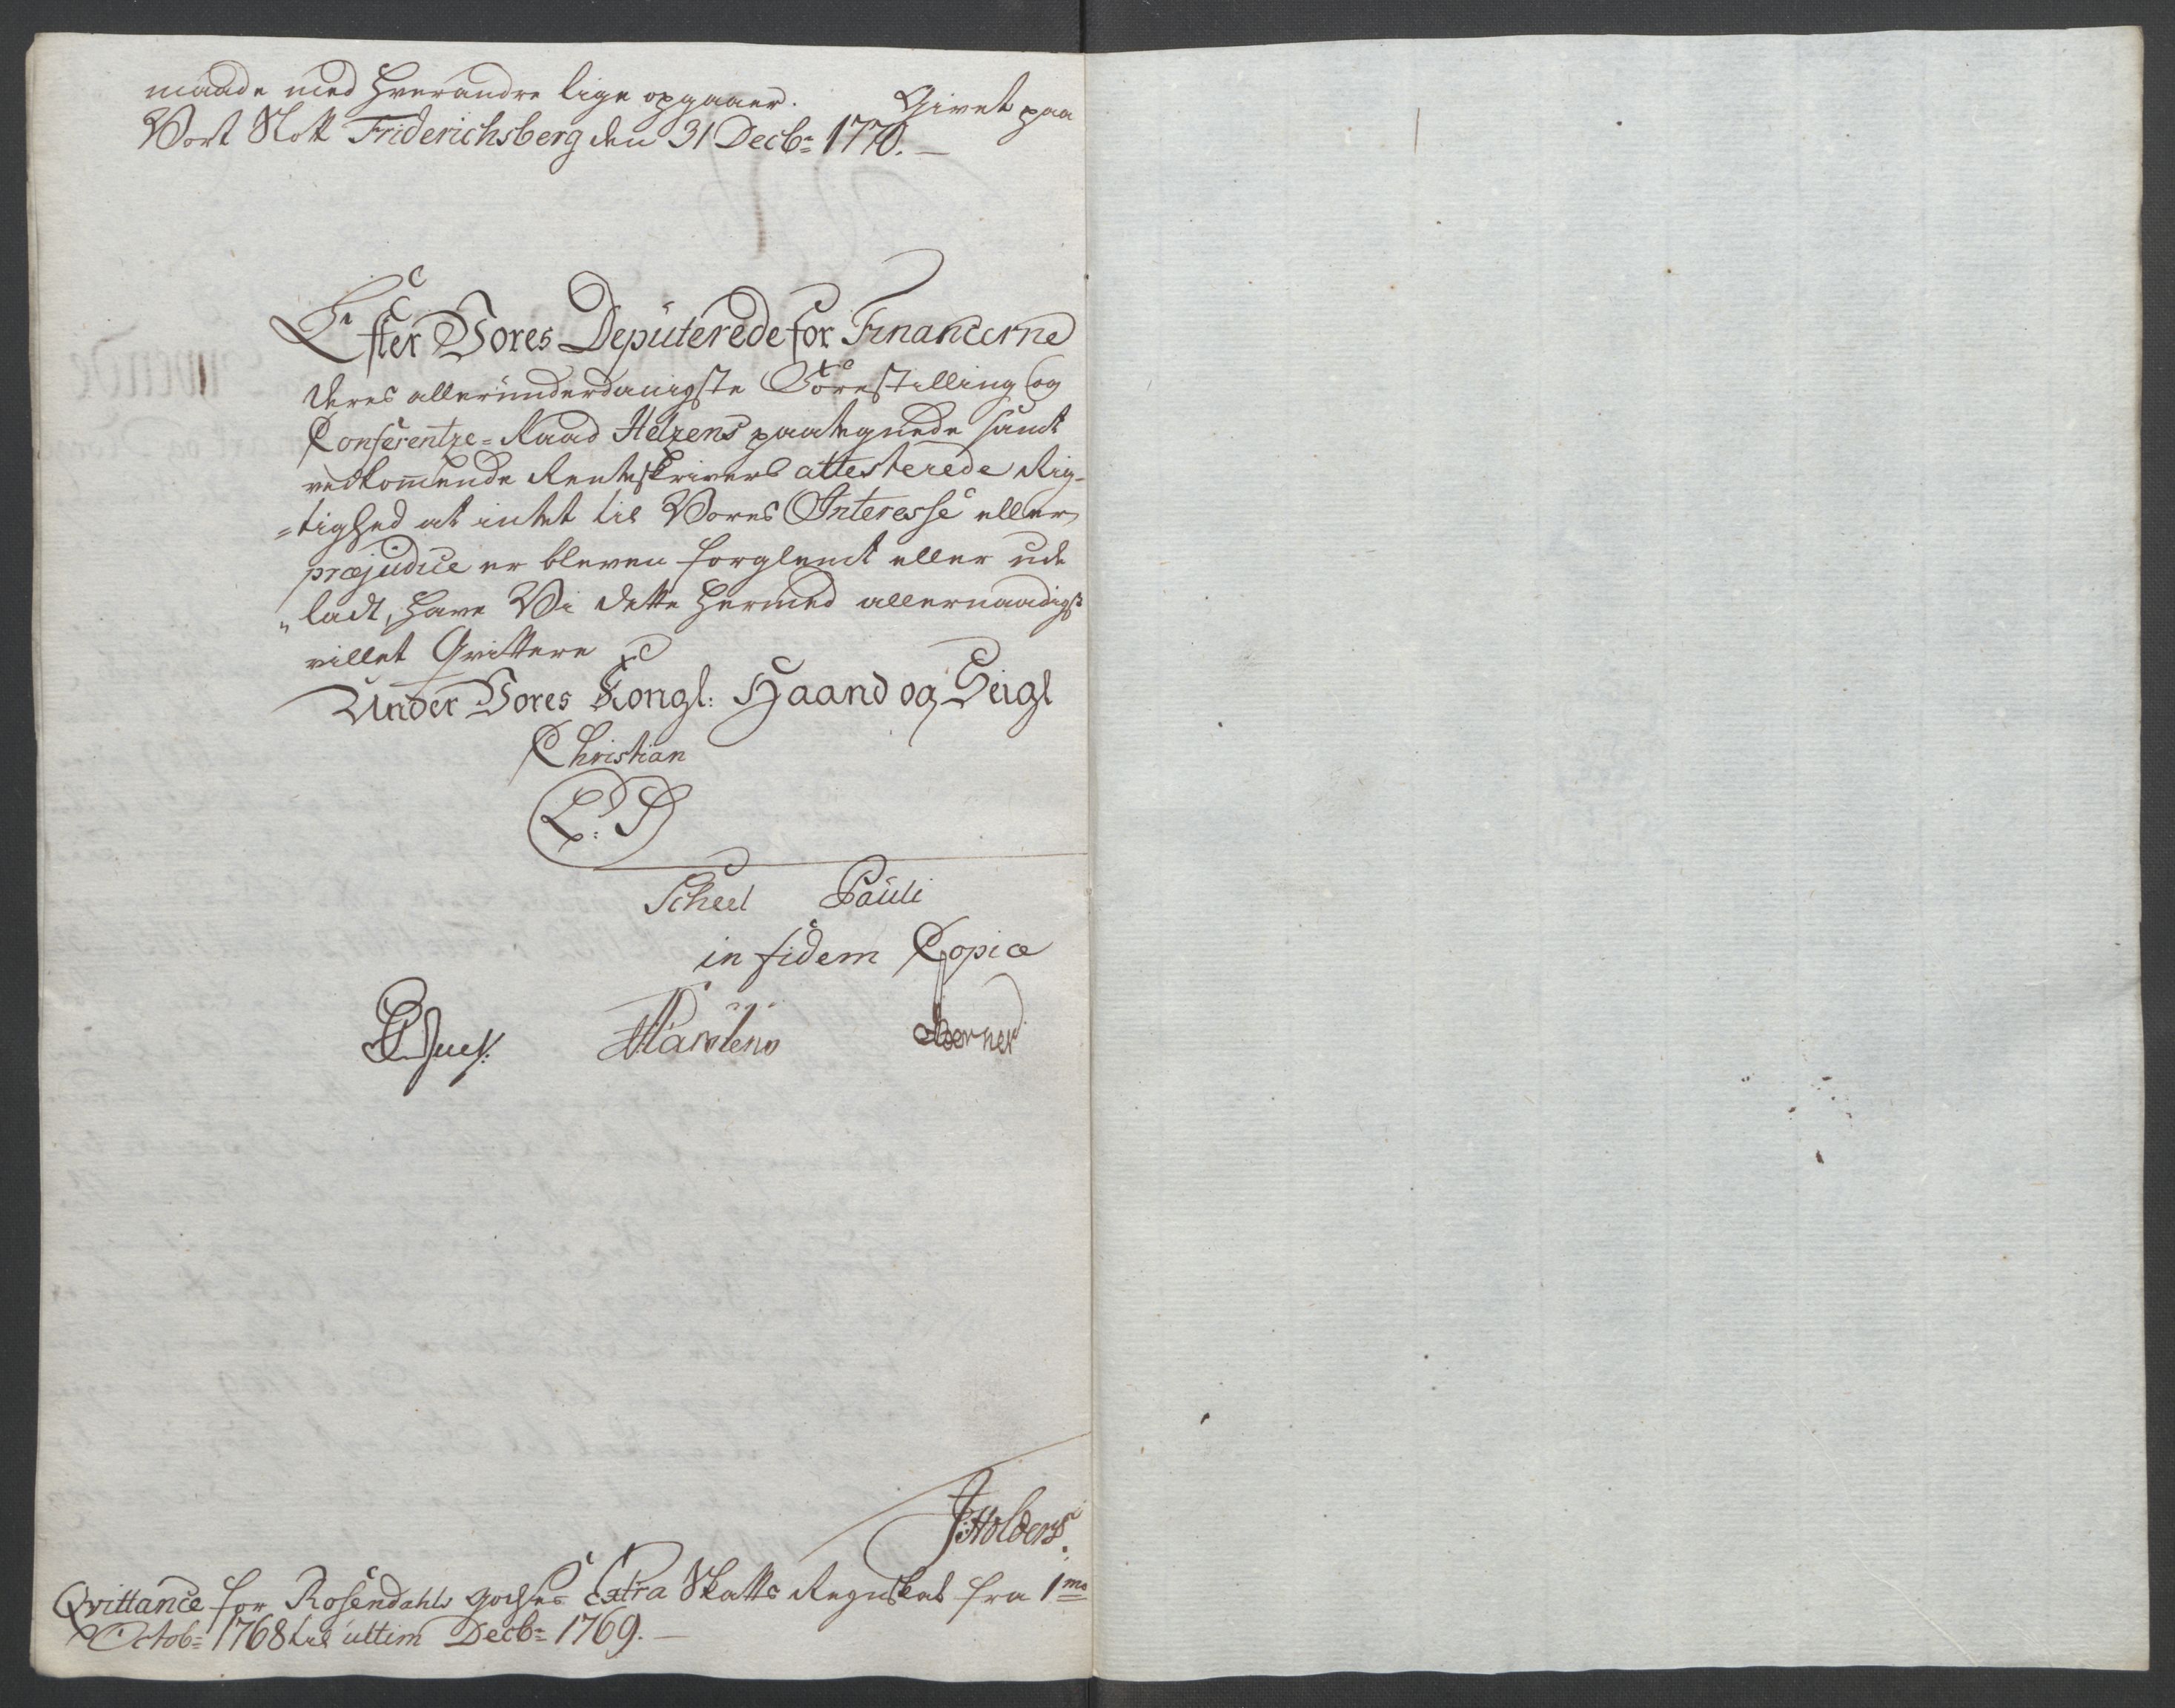 maade med hverandre lige opgaaer. Givet paa
Vort Slott Friderichsberg den 31 Decbr: 1770.
Efter Vores Deputerede for Financerne
deres allerunderdanigste Forestilling og
Conferentze-Raad Helzens paategnede samt
vedkommende Renteskrivers attesterede Rig-
-tighed at intet til Vores Interesse eller
præjudice er bleven forglemt eller ude
"ladt, have Vi dette hermed allernaadigst
villet Qvittere
Under Vores Kongl: Haand og Seigl
Christian
L. S
Scheel Pauli
in fidem Copiæ
Martens Berner
JHolders.
Qvittance for Rosendahls Godses Extra Skatts Regnskab fra 1mo
Octob= 1768 til ultim Decbr= 1769.